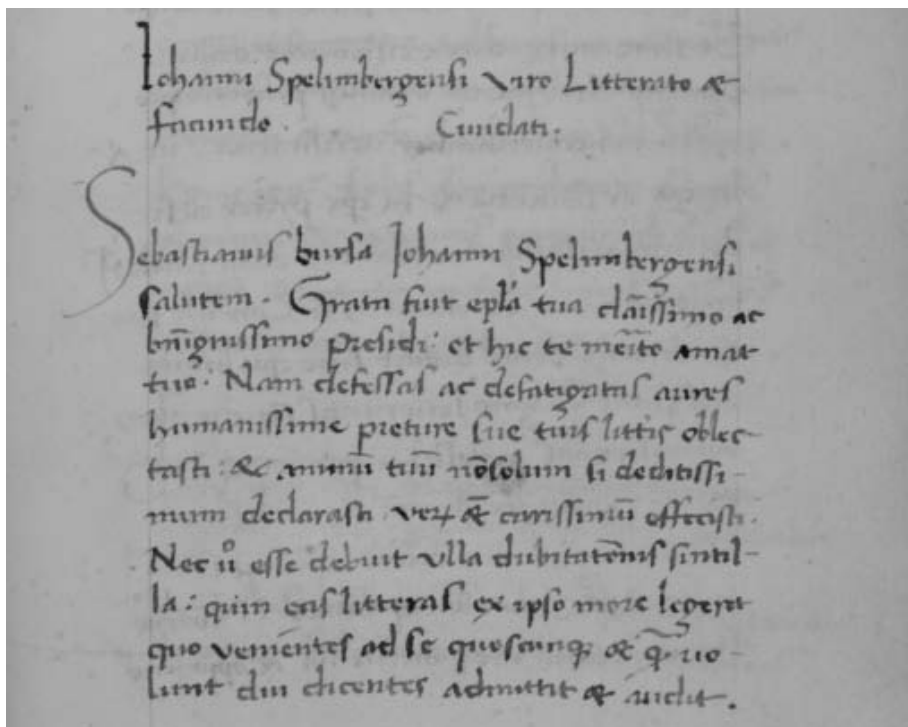 Iohanni Spelimbergensi Viro Litterato &
facundo. Ciuidati.
Sebastianus bursa Iohanni Spelimbergensi
salutem. Grata fuit epl̃a tua clarĩssimo ac
bñignissimo presidi: et hic te merĩto amat
tuo. Nam defessas ac defatigatas aures
humanissime preture sue tuis litt̃is oblec-
tasti: & animũ tuũ nõsolum si deditissi-
mum declarasti. verꝝ & carissimũ effecisti.
Nec ů esse debuit vlla dubitatẽnis sintil-
la: quin eas litteras ex ipso more legerit
quo venientes ad se quoscunqꝫ & q̃ uo-
lunt diu dicentes admittit & audit.